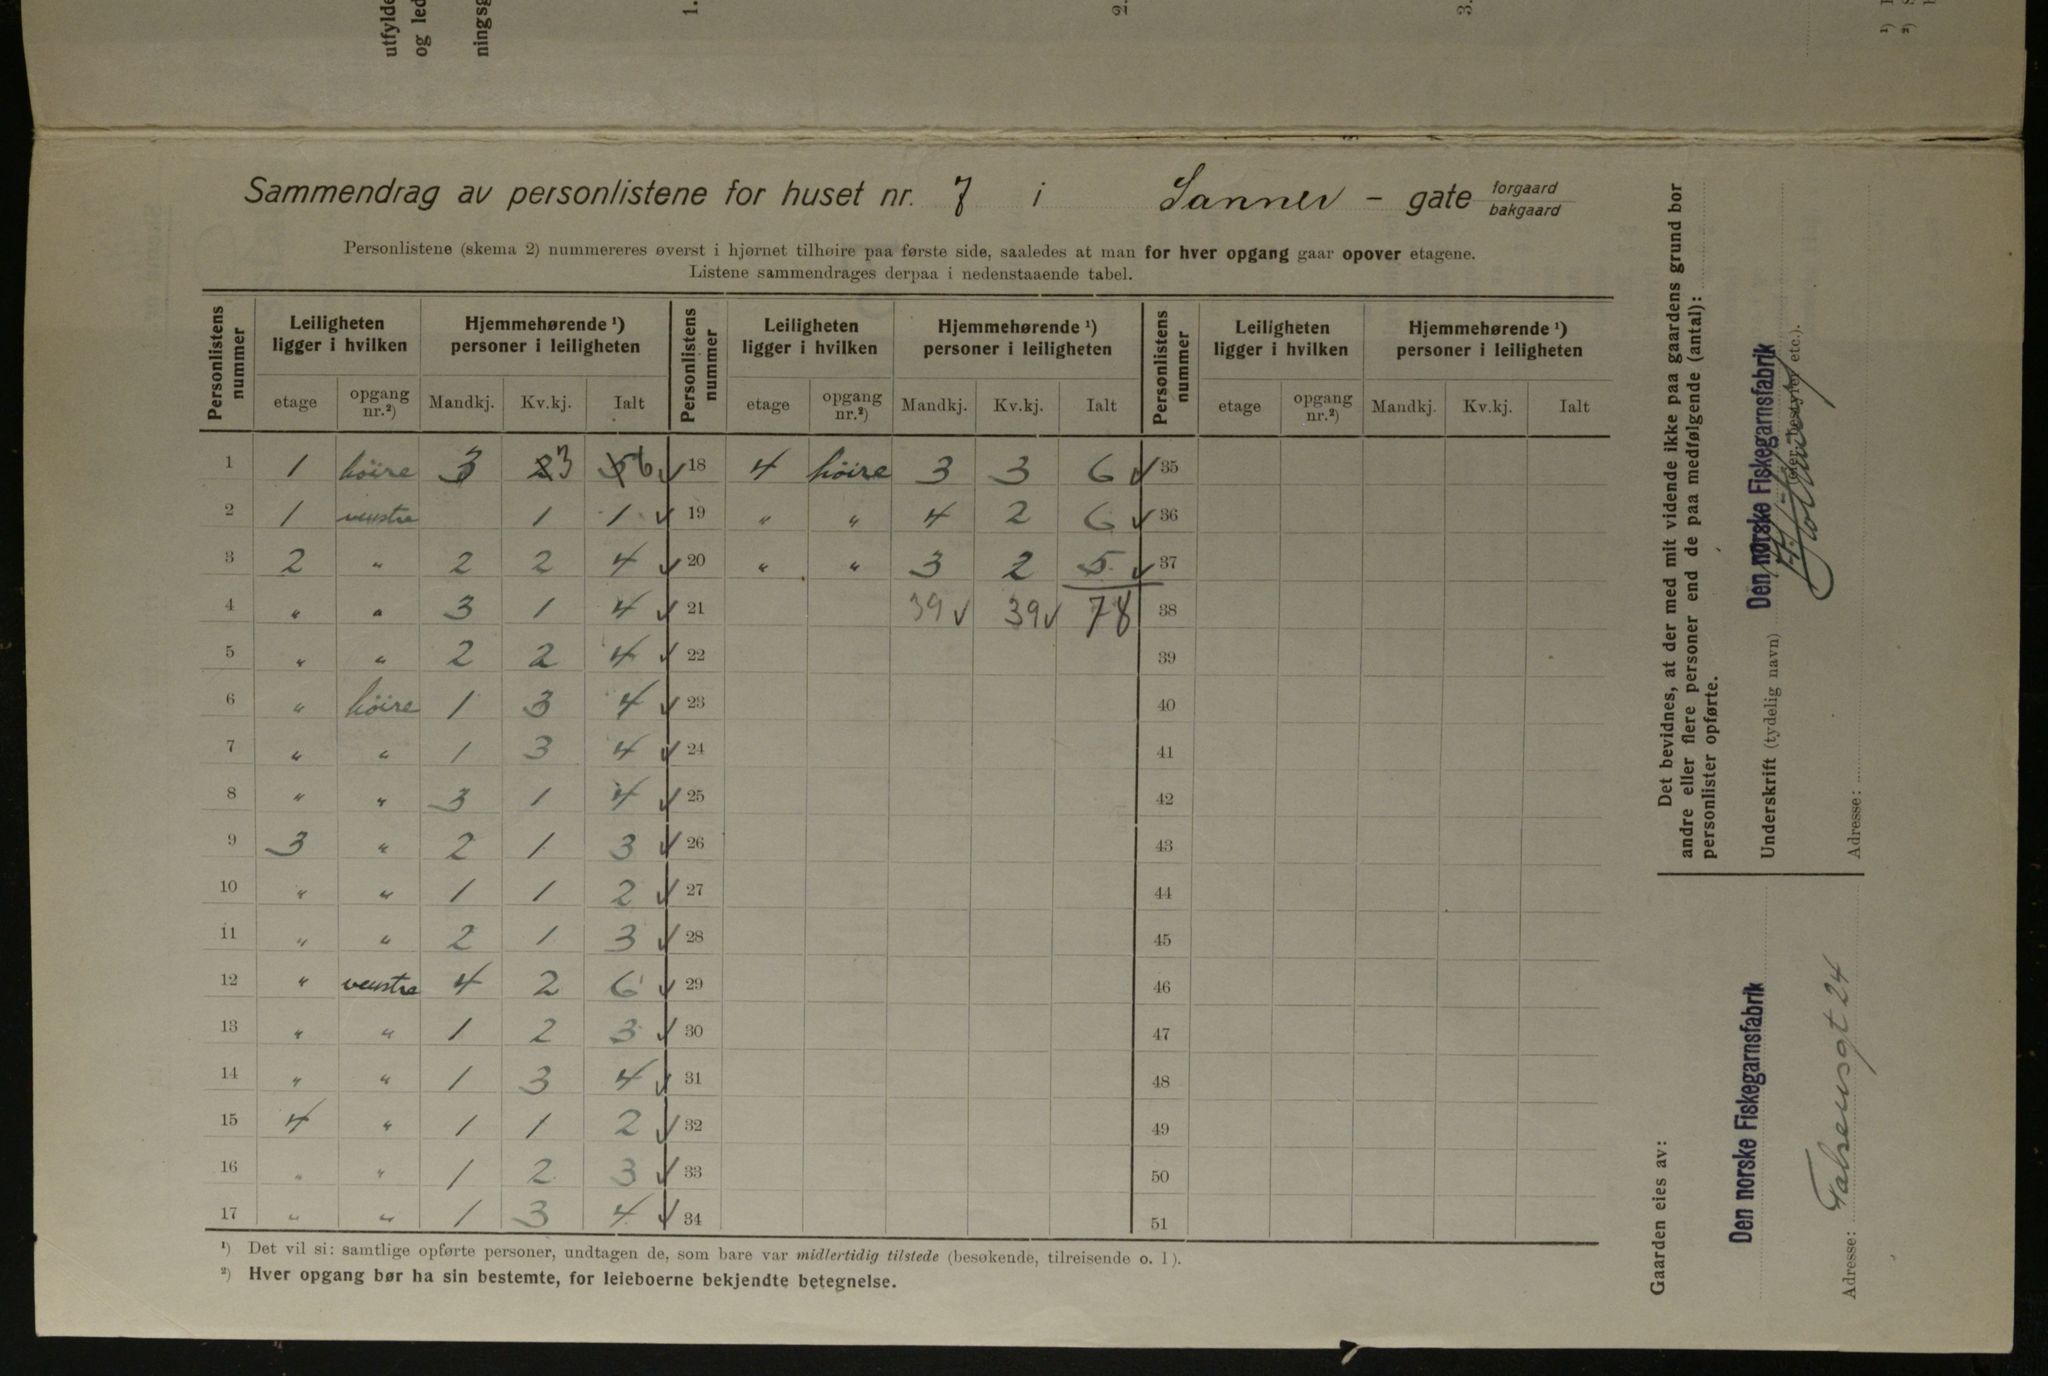 utfylde
og led
ningsg
1.
2.
3.
¹)
²)
Sammendrag av personlistene for huset nr. 7 i Sanner - gate forgaard
bakgaard
Personlistene (skema 2) nummereres øverst i hjørnet tilhøire paa første side, saaledes at man for hver opgang gaar opover etagene.
Listene sammendrages derpaa i nedenstaaende tabel.
Personlistens nummer | Leiligheten ligger i hvilken | Hjemmehørende ¹) personer i leiligheten | Personlistens nummer | Leiligheten ligger i hvilken | Hjemmehørende ¹) personer i leiligheten | Personlistens nummer | Leiligheten ligger i hvilken | Hjemmehørende ¹) personer i leiligheten
etage | opgang nr.²) | Mandkj. | Kv.kj. | Ialt | etage | opgang nr.²) | Mandkj. | Kv.kj. | Ialt | etage | opgang nr.²) | Mandkj. | Kv.kj. | Ialt
1 1 höire 3 2 3 5 6 ✓ 18 4 höire 3 3 6 ✓ 35
2 1 venstre 1 1 ✓ 19 " " 4 2 6 ✓ 36
3 2 " 2 2 4 ✓ 20 " " 3 2 5 ✓ 37
4 " " 3 1 4 ✓ 21 39 ✓ 39 ✓ 78 38
5 " " 2 2 4 ✓ 22 39
6 " höire 1 3 4 ✓ 23 40
7 " " 1 3 4 ✓ 24 41
8 " " 3 1 4 ✓ 25 42
9 3 " 2 1 3 ✓ 26 43
10 " " 1 1 2 ✓ 27 44
11 " " 2 1 3 ✓ 28 45
12 " venstre 4 2 6 ✓ 29 46
13 " " 1 2 3 ✓ 30 47
14 " " 1 3 4 ✓ 31 48
15 4 " 1 1 2 ✓ 32 49
16 " " 1 2 3 ✓ 33 50
17 " " 1 3 4 ✓ 34 51
¹) Det vil si: samtlige opførte personer, undtagen de, som bare var midlertidig tilstede (besøkende, tilreisende o. l).
²) Hver opgang bør ha sin bestemte, for leieboerne bekjendte betegnelse.
Det bevidnes, at der med mit vidende ikke paa gaardens grund bor
andre eller flere personer end de paa medfølgende (antal):
personlister opførte.
Underskrift (tydelig navn) Den norske Fiskegarnsfabrik
(eier, bestyrer etc.).
Adresse:
Gaarden eies av:
Den norske Fiskegarnsfabrik
Adresse: Falsensgt 24